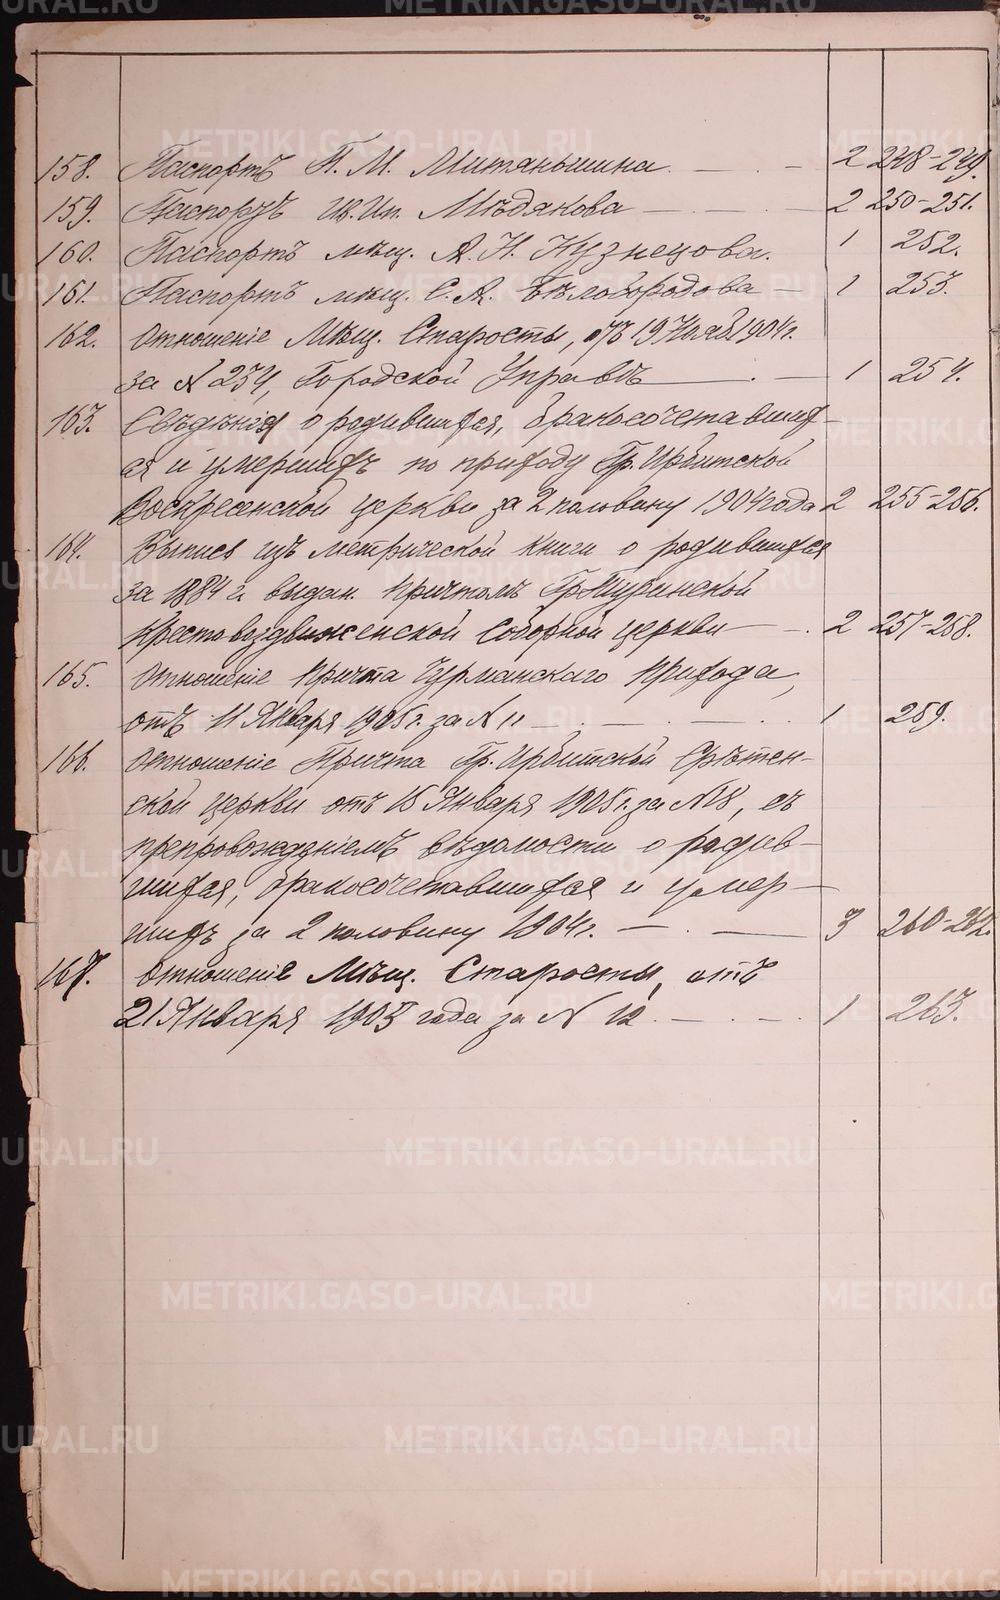 METRIKI.GASO-URAL.RU
158. Паспортъ П. М. Митаньшина. — - 2 248-249.
159. Паспортъ Ив. Ип. Мѣдякова — 2 250-251.
160. Паспортъ мѣщ. А. Н. Кузнецова. 1 252.
161. Паспортъ мѣщ. С. А. Бѣлобородова — 1 253.
162. Отношеніе Мѣщ. Старосты, отъ 19 1904 г.
за № 234, Городской Управѣ — . — 1 254.
163. Свѣдѣнія о родившихся, бракосочетавших-
ся и умершихъ по приходу Гр. Ирбитской
Воскресенской церкви за 2 половину 1904 года 2 255-256.
164. Выпись изъ метрической книги о родившихся
за 1884 г. выдан. причтомъ Гр. Туринской
Крестовоздвиженской Соборной церкви — . 2 257-258.
165. Отношеніе Причта Чурманскаго прихода,
отъ 11 Января 1905 г. за № 11 — . — . 1 259.
166. Отношеніе Причта Гр. Ирбитской Срѣтен-
ской церкви отъ 15 Января 1905 г. за № 8, съ
препровожденіемъ вѣдомости о родив-
шихся, бракосочетавшихся и умер-
шихъ за 2 половину 1904 г. — . — 3 260-262.
167. Отношеніе Мѣщ. Старосты, отъ
21 Января 1905 года за № 12. — . — . 1 263.